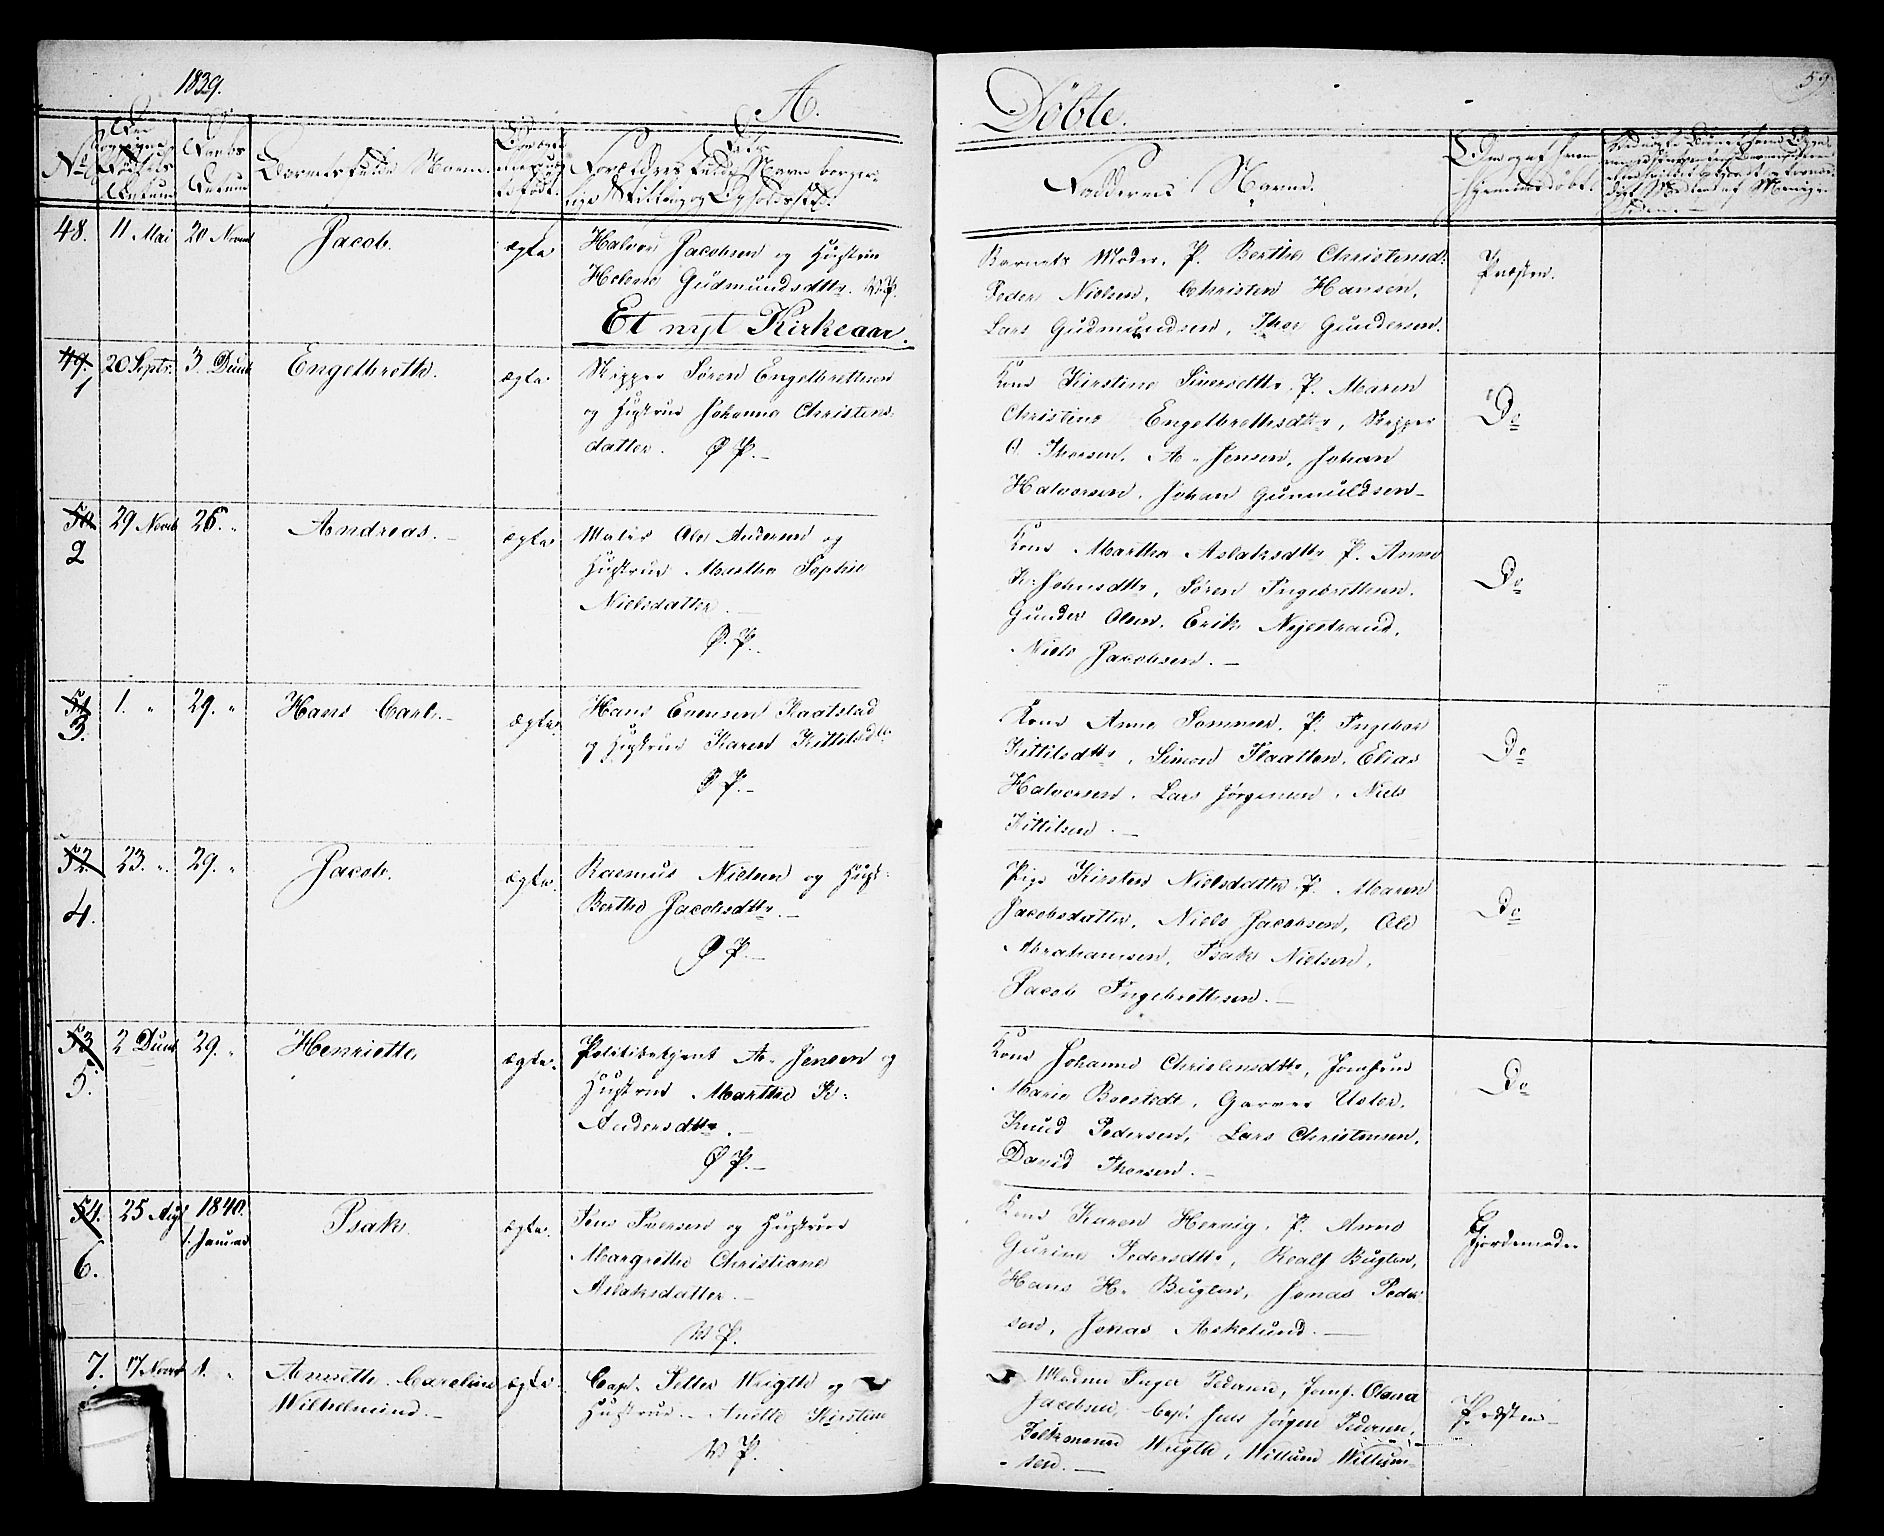 1839.
A.
Døbte.
59
No
Barnets fulde Navn.
Faddernes Navne.
48. 11 Mai 20 Novemb Jacob. ægte
Halvor Jacobsen og Hustrue
Helene Gudmundsdttr. V. P.
Barnets Moder. P. Berthe Christensdt.
Peder Nielsen, Christen Hansen,
Lars Gudmundsen, Thor Gundersen.
Præsten.
Et nyt Kirkeaar.
49. 1 20 Septr. 3. Decmb Engelbreth. ægte.
Skipper Søren Engelbrethsen
og Hustrue Johanne Christens-
datter. Ø P.
Kone Kirstine Siversdttr. P. Maren
Christine Engelbrethsdttr, Skipper
O. Thorsen, A. Jensen, Johan
Halvorsen, Johan Gunnuldsen
Do
50 2 29 Novb 26. " Andreas. ægte.
Matros Ole Andersen og
Hustrue Marthe Sophie
Nielsdatter.
Ø. P.
Kone Marthe Aslaksdttr P. Anne
K. Johnsdttr, Søren Ingebrethsen.
Gunder Olsen, Erik Nyestrand,
Niels Jacobsen.
Do
51 3. 1. " 29. " Hans Carl. ægte.
Hans Evensen Kaatstad
og Hustrue Karen Kittilsdtt.
Ø P.
Kone Anne Sommer. P. Ingebor
Kittilsdttr, Simon Flaatten, Elias
Halvorsen, Lars Jørgensen, Niels
Kittilsen.
Do
52. 4. 23. " 29. " Jacob. ægte.
Rasmus Nielsen og Hust:
Berthe Jacobsdttr.
Ø P.
Pige Kirsten Nielsdatter, P. Maren
Jacobsdatter, Niels Jacobsen, Ole
Abrahamsen, Isak Nielsen,
Jacob Ingebrethsen.
Do
53 5. 2 Decmb 29. " Henriette ægte.
Politibetjent A. Jensen og
Hustrue Marthe K.
Andersdttr.
Ø P.
Kone Johanne Christensdttr, Jomfrue
Marie Boestedt, Garver Usler,
Knud Pedersen, Lars Christensen,
David Thorsen.
Do
54. 6. 25 Augt 1840. 1. Januar Isak. ægte.
Jens Iversen og Hustrue
Margrethe Christiane
Aslaksdatter.
V P.
Kone Karen Hervig, P. Anne
Gurine Pedersdttr, Roalf Buglen,
Hans H. Buglen, Jonas Peder-
sen, Jonas Askelund.
Gjordemoder
7. 17 Novbr 1. " Annette Caroline
Wilhelmine. ægte.
Capt. Petter Wrigth og
Hustrue Anette Kirstine
V P.
Madme Inger Pedersen, Jomf. Olava
Jacobsen, Capt. Jens Jørgen Pedersen,
Wrigth, Willum Willum-
sen.
Præsten